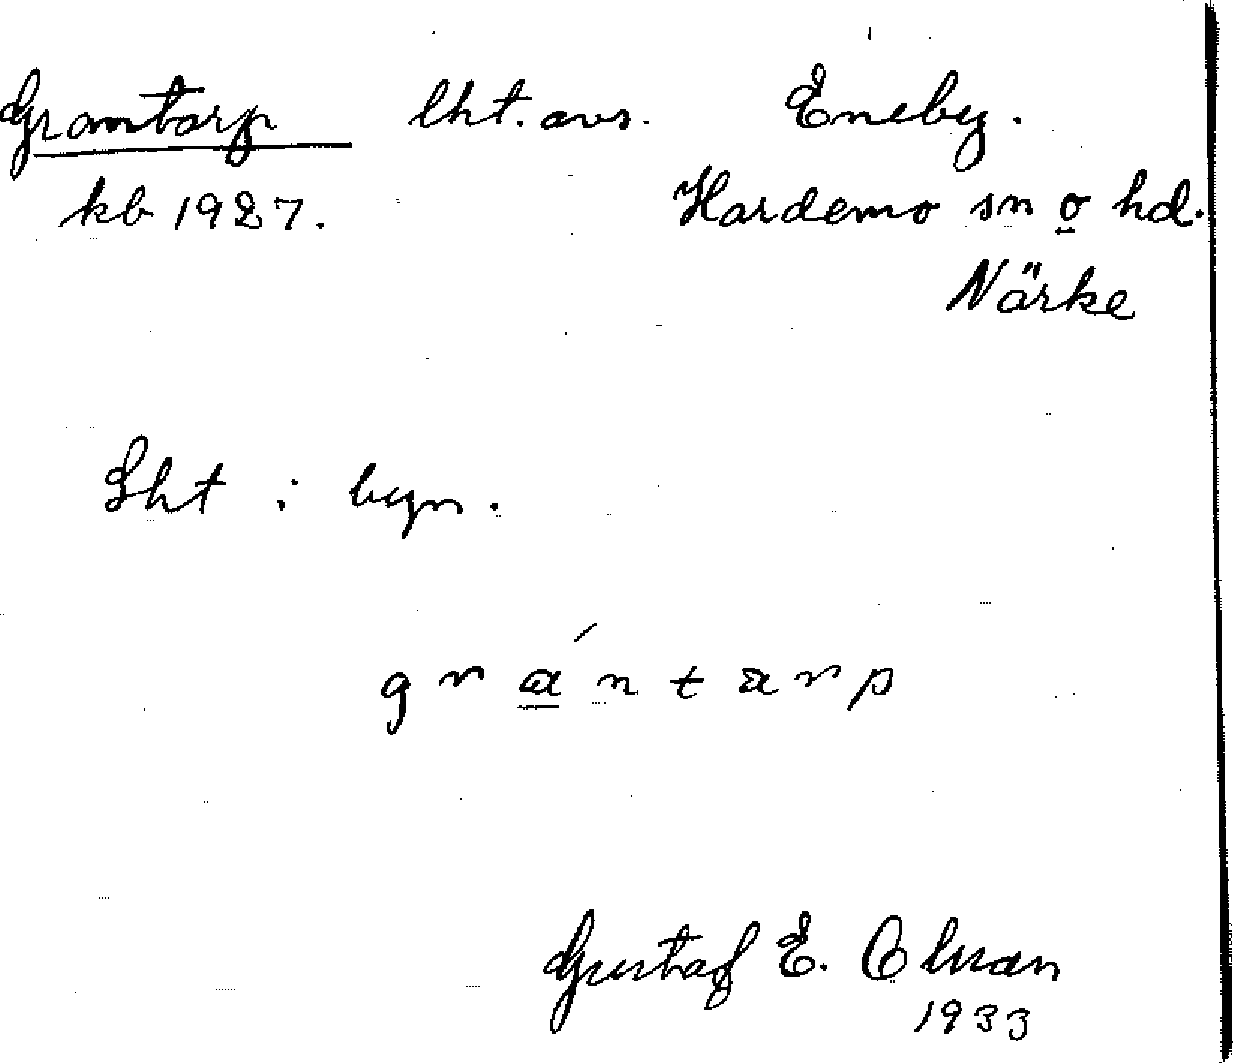 Grantorp lht. avs. Eneby.
kb 1927. Hardemo sn o hd.
Närke
Lht i byn.
grántarp
Gustaf E. Olsson
1933